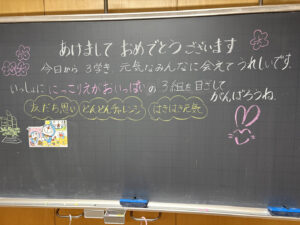 あけまして おめでとう ございます
今日から 3学き、元気なみんなに会えて うれしいです。
いっしょに にっこりえがおいっぱい の 3組を目ざして
がんばろうね。
友だち思い どんどんチャレンジ はきはき元気